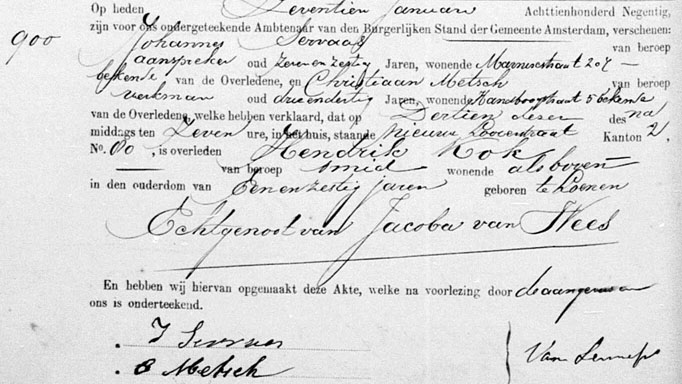 Op heden Zeventien Januari Achttienhonderd Negentig,
zijn voor ons ondergeteekende Ambtenaar van den Burgerlijken Stand der Gemeente Amsterdam, verschenen:
900
Johannes Servaas van beroep
aanspreker oud zeven en zestig Jaren, wonende Marnixstraat 207
bekende van de Overledene, en Christiaan Metsch van beroep
werkman oud drieendertig Jaren, wonende 5 bekende
van de Overledene, welke hebben verklaard, dat op Dertien dezer des na
middags ten Zeven ure, in het huis, staande Nieuwe Looierstraat Kanton 2,
No. 60, is overleden Hendrik Kok
van beroep smid wonende als boven
in den ouderdom van Een en zestig jaren geboren te Loenen
Echtgenoot van Jacoba van Hees
En hebben wij hiervan opgemaakt deze Akte, welke na voorlezing door de aangevers
ons is onderteekend.
J Servaas
C Metsch
Van Lennep